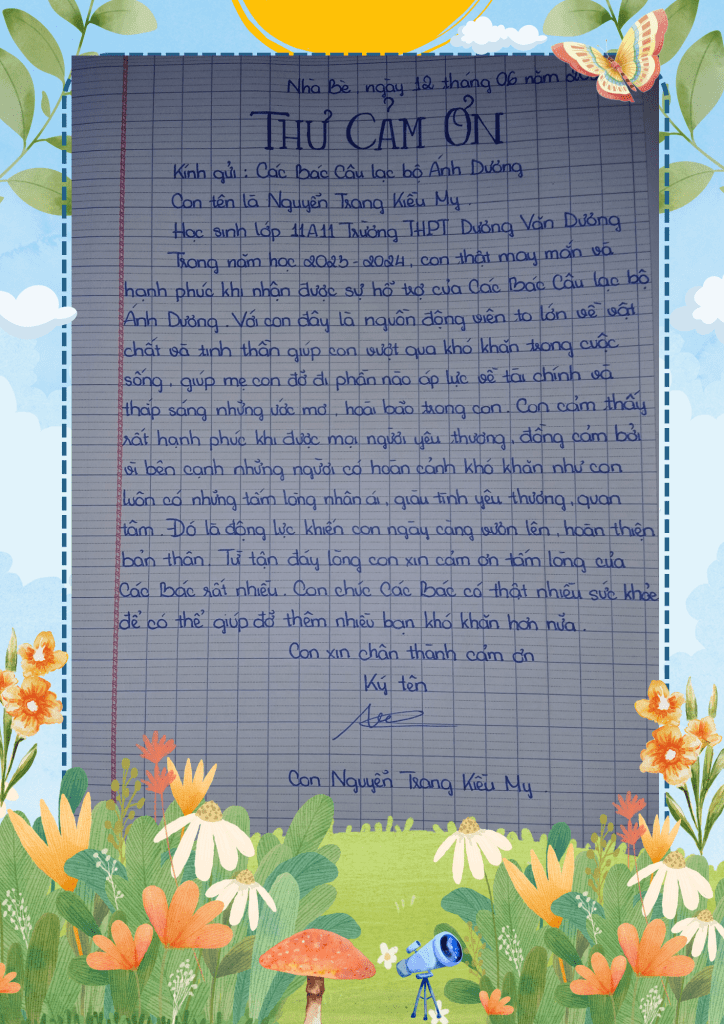 Nhà Bè, ngày 12 tháng 06 năm
THƯ CẢM ƠN
Kính gửi : Các Bác Câu lạc bộ Ánh Dương
Con tên là Nguyễn Trang Kiều My.
Học sinh lớp 11A11 Trường THPT Dương Văn Dương
Trong năm học 2023-2024, con thật may mắn và
hạnh phúc khi nhận được sự hỗ trợ của Các Bác Câu lạc bộ
Ánh Dương. Với con đây là nguồn động viên to lớn về vật
chất và tinh thần giúp con vượt qua khó khăn trong cuộc
sống, giúp mẹ con đỡ đi phần nào áp lực về tài chính và
thắp sáng những ước mơ, hoài bão trong con. Con cảm thấy
rất hạnh phúc khi được mọi người yêu thương, đồng cảm bởi
vì bên cạnh những người có hoàn cảnh khó khăn như con
luôn có những tấm lòng nhân ái, giàu tình yêu thương, quan
tâm. Đó là động lực khiến con ngày càng vươn lên, hoàn thiện
bản thân. Từ tận đáy lòng con xin cảm ơn tấm lòng của
Các Bác rất nhiều. Con chúc Các Bác có thật nhiều sức khỏe
để có thể giúp đỡ thêm nhiều bạn khó khăn hơn nữa.
Con xin chân thành cảm ơn
Ký tên
Con Nguyễn Trang Kiều My